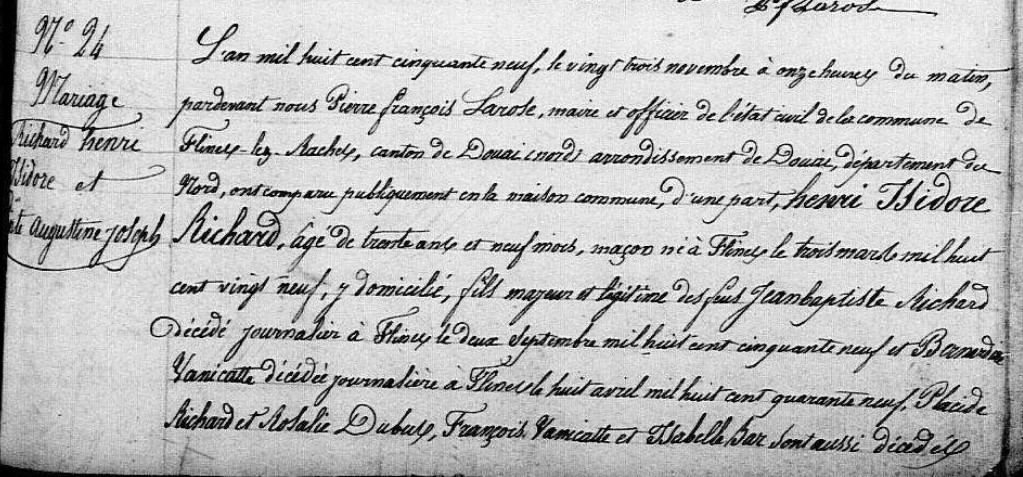 Larose
N.o 24
Mariage
Richard henri
Isidore et
Augustine Joseph
L'an mil huit cent cinquante neuf, le vingt trois novembre à onze heures du matin,
pardevant nous Pierre françois Larose, maire et officier de l'état civil de la commune de
Flines-lez-Raches, canton de Douai (nord) arrondissement de Douai, département du
Nord, ont comparu publiquement en la maison commune, d'une part, henri Isidore
Richard, âgé de trente ans et neuf mois, maçon né à Flines le trois mars mil huit
cent vingt neuf, y domicilié, fils majeur et légitime des feus Jean baptiste Richard
décédé journalier à Flines le deux Septembre mil huit cent cinquante neuf et Bernardine
Vanicatte décédée journalière à Flines le huit avril mil huit cent quarante neuf, Placide
Richard et Rosalie Dubus, François Vanicatte et Isabelle Bar sont aussi décédés